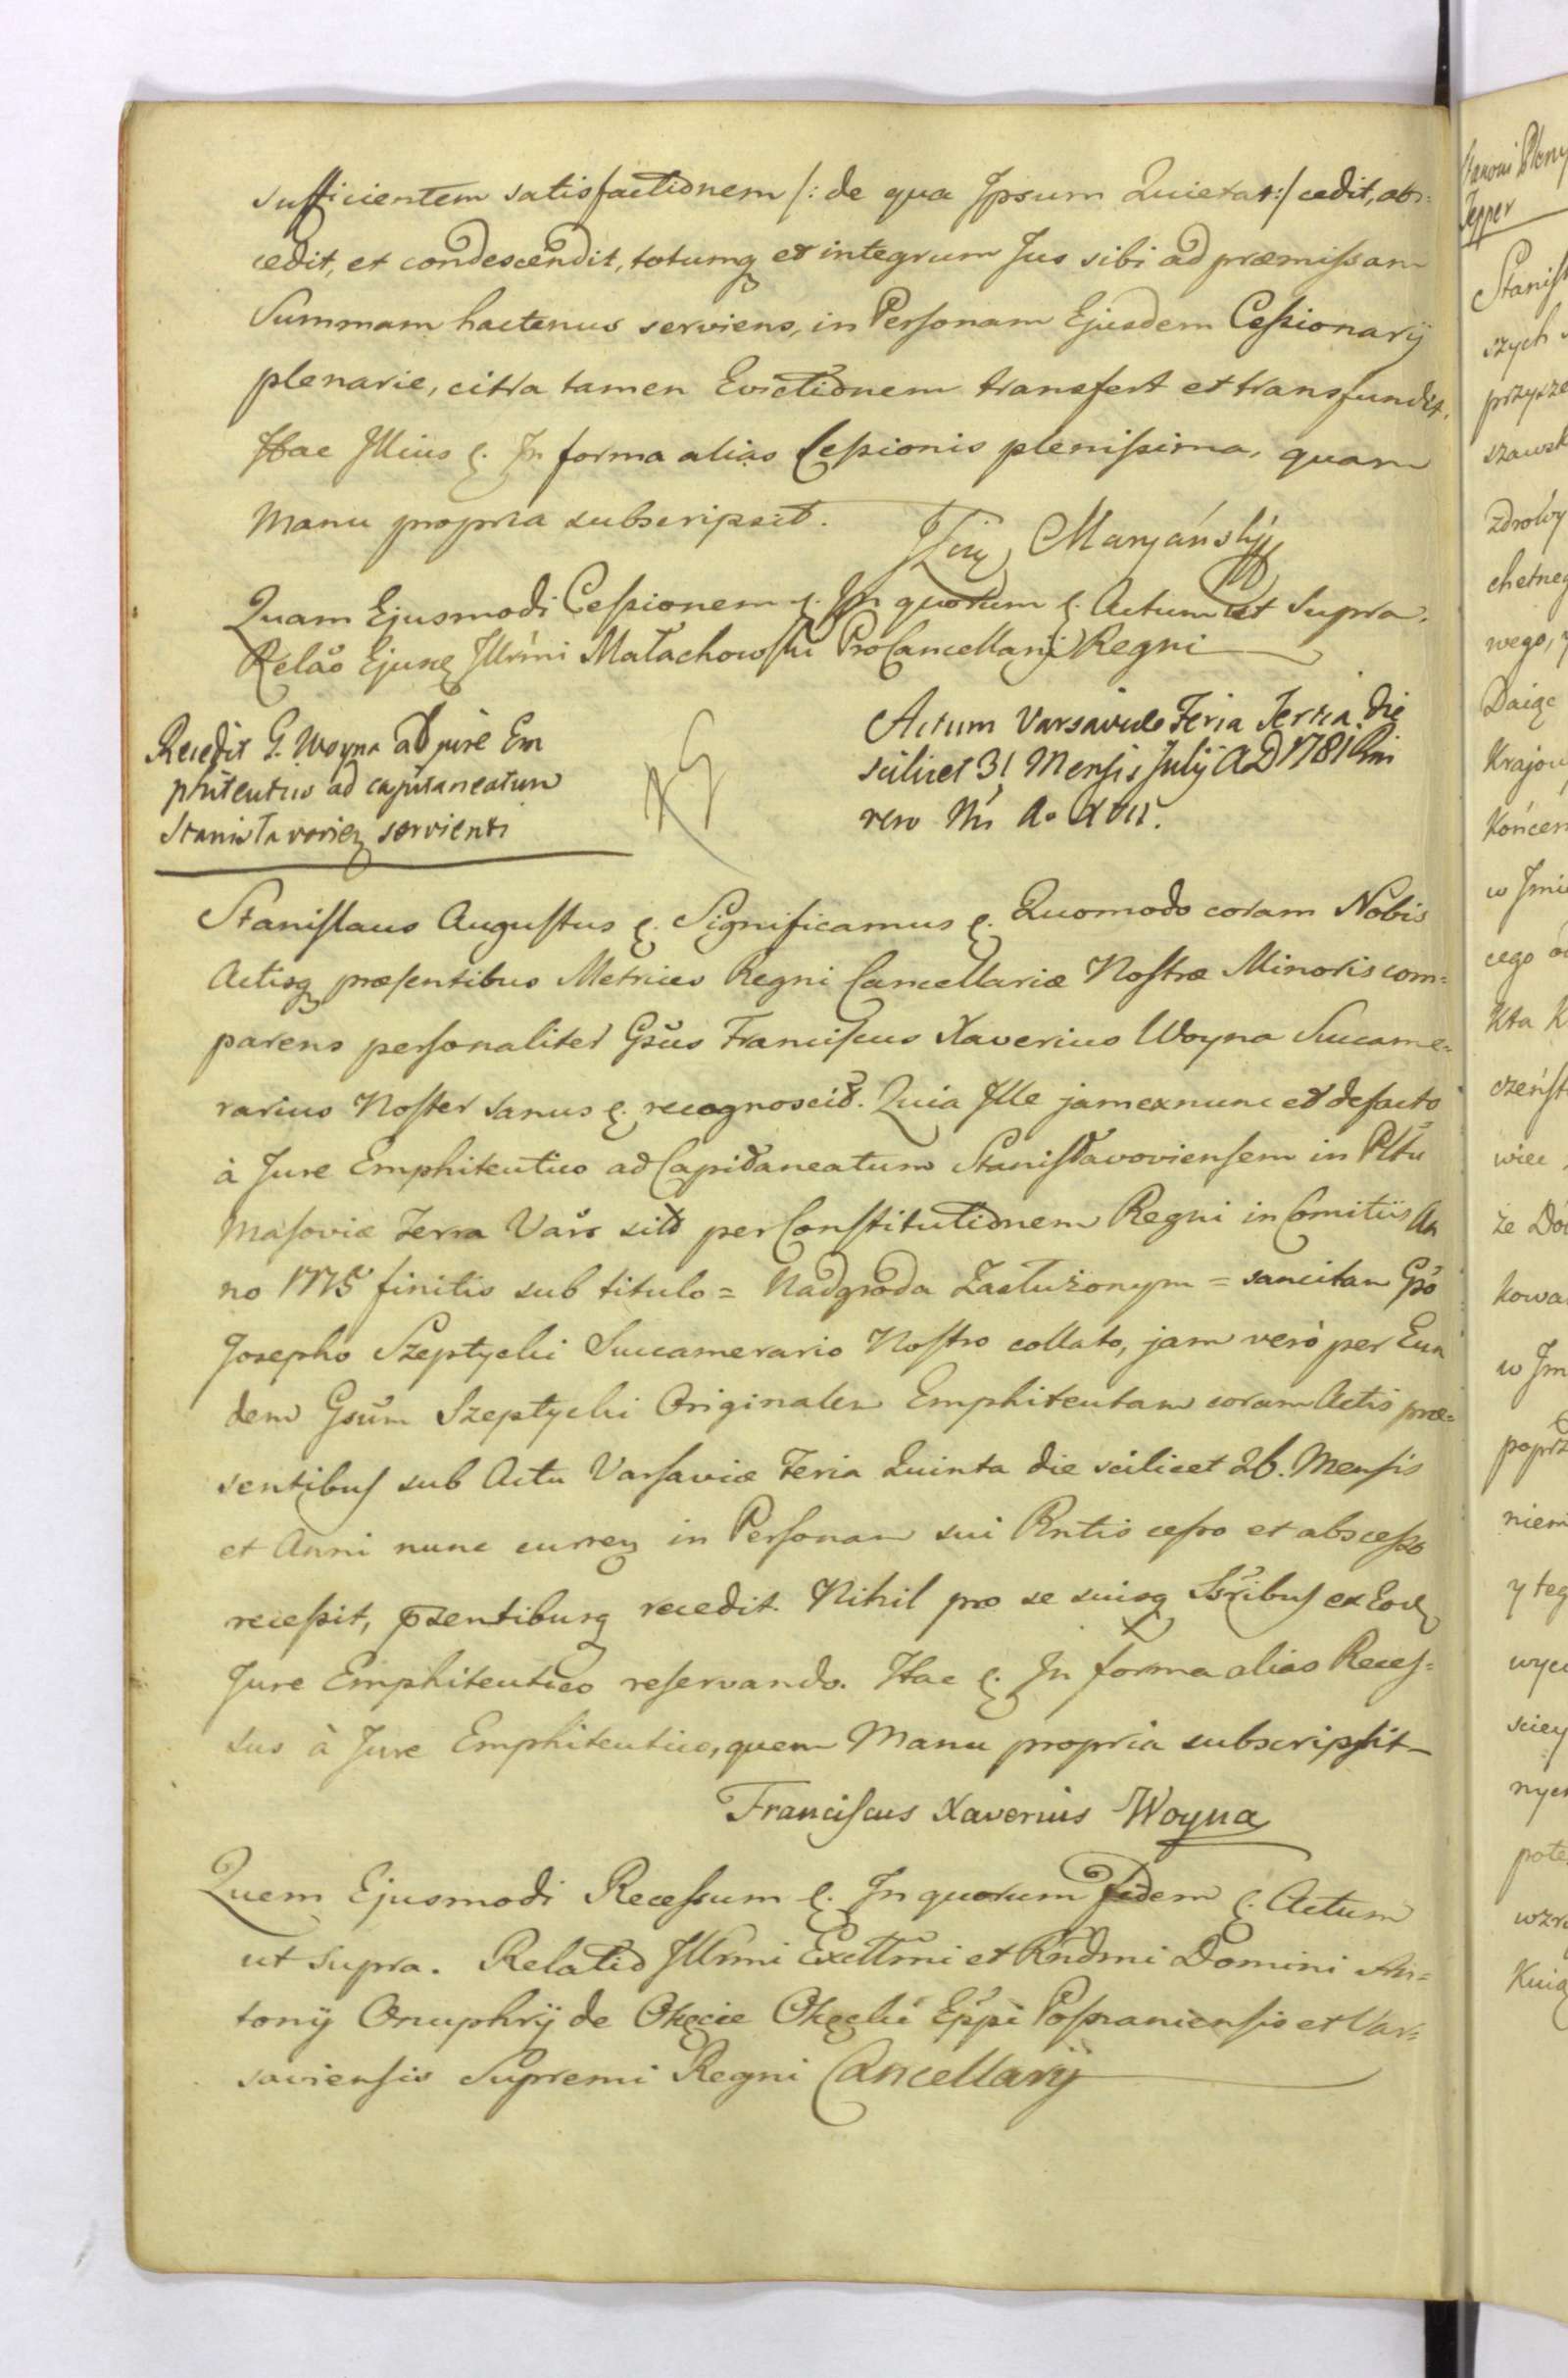 sufficientem satisfactionem /: de qua Ipsum Quietat :/ cedit, abs-
cedit, et condescendit, totumq et integrum Jus sibi ad præmissam
Summam hactenus serviens, in Personam Ejusdem Cessionarÿ
plenarie, citra tamen Evictionem transfert et transfundit.
Hac Illius &. In forma alias Cessionis plenissima, quam
Manu propria subscripsit.
Maryánskj
Quam Ejusmodi Cessionem &. In quorum &. Actum ut Supra.
Relão Ejusq Illrmi Małachowski ProCancellarÿ Regni
Recedit G. Woyna ab jure Em
phiteutico ad capitaneatum
Stanisłavovien servienti
Actum Varsaviæ Feria Tertia die
scilicet 31 Mensis Julÿ AD 1781 Rni
vero Nri Ao XVII.
Stanislaus Augustus &. Significamus &. Quomodo coram Nobis
Actisq præsentibus Metrices Regni Cancellariæ Nostræ Minoris com=
parens personaliter Gsus Franciscus Xaverius Woyna Succame=
rarius Noster sanus &. recognoscit. Quia Ille jam exnunc et defacto
à Jure Emphiteutico ad Capitaneatum Stanisławoviensem in Pltu
Masoviæ Terra Vars sito per Constitutionem Regni in Comitiis An
no 1775 finitis sub titulo = Nadgroda Zasłużonym = sancitam Gso
Josepho Szeptycki Succamerario Nostro collato, jam verò per Eun
dem Gsum Szeptycki Originalem Emphiteutam coram Actis præ=
sentibus sub Actu Varsaviæ Feria Quinta die scilicet 26. Mensis
et Anni nunc curren in Personam sui Rntis cesso et abscesso
recessit, psentibusq recedit. Nihil pro se suisq Ssribus ex Eod
Jure Emphiteutico reservando. Hac &. In forma alias Reces=
sus à Jure Emphiteutico, quem Manu propria subscripsit
Franciscus Xaverius Woyna
Quem Ejusmodi Recessum &. In quorum fidem &. Actum
ut supra. Relatio Illrmi Excellmi et Rndmi Domini An=
tonÿ Onuphrÿ de Okęcie Okęcki Eppi Posnaniensis et Var=
saviensis Supremi Regni Cancellarÿ
Stanisł
szych
przysze
szawsk
zdrowy
chetneg
wego,
Daiąc
Krajow
Kończen
w Jmie
cego
Kta K
czeńst
wiec
że Do
kowa
w Jm
poprz
niem
y teg
wyci
sciey
nych
pote
wzrę